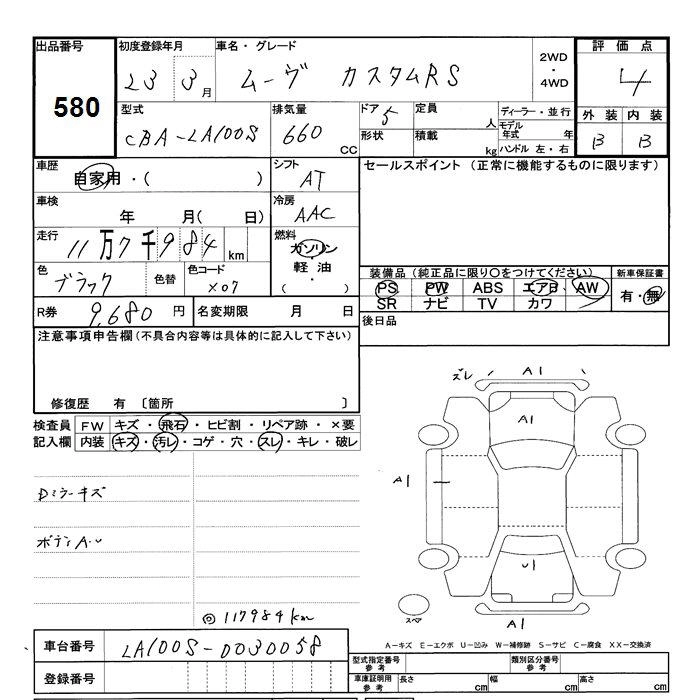 出品番号 初度登録年月 車名・グレード 2WD・4WD 評価点
580 23 3月 ムーヴ カスタムRS 4
型式 排気量 ドア 定員 ディーラー・並行 外装 内装
CBA-LA100S 660 CC 5 人 モデル年式 年 B B
形状 積載 kg ハンドル 左・右
車歴 シフト セールスポイント (正常に機能するものに限ります)
自家用・( ) AT
車検 冷房
年 月( 日) AAC
走行 11万7千984 km 燃料 ガソリン
軽油
・( )
色 ブラック 色替 色コード X07
装備品 (純正品に限り○をつけてください) 新車保証書
PS PW ABS エアB AW 有・無
SR ナビ TV カワ
R券 9,680 円 名変期限 月 日 後日品
注意事項申告欄 (不具合内容等は具体的に記入して下さい)
修復歴 有 〔箇所 〕
検査員 FW キズ・飛石・ヒビ割・リペア跡・×要
記入欄 内装 キズ・汚レ・コゲ・穴・スレ・キレ・破レ
Dミラーキズ
ボディA・U
◎117984km
ズレ A1
A1
A1
U1
スペア A1
A-キズ E-エクボ U-凹み W-補修跡 S-サビ C-腐食 XX-交換済
車台番号 LA100S-0030058
登録番号
型式指定番号 参考 類別区分番号 参考
車庫証明用 参考 長さ cm 幅 cm 高さ cm